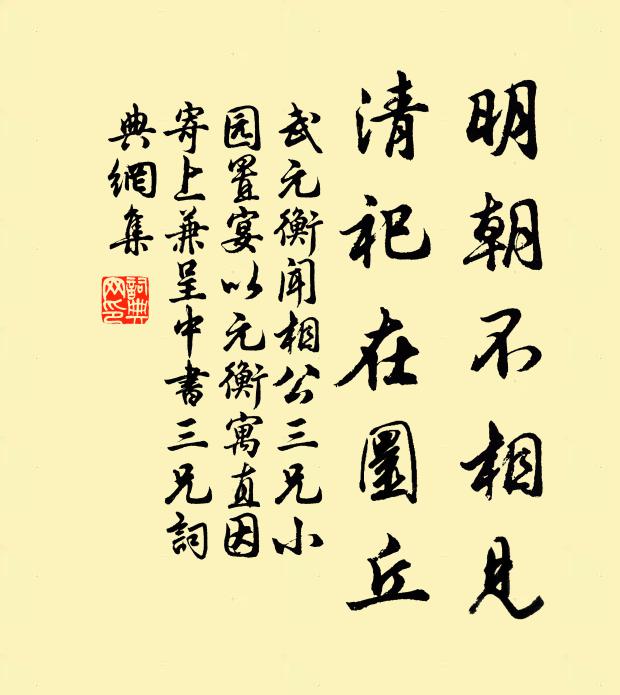 明朝不相見
清祀在圜丘
武元衡闻相公三兄小
园置宴以元衡寓直因
寄上兼呈中書三兄詞
典網集
詞典
网印